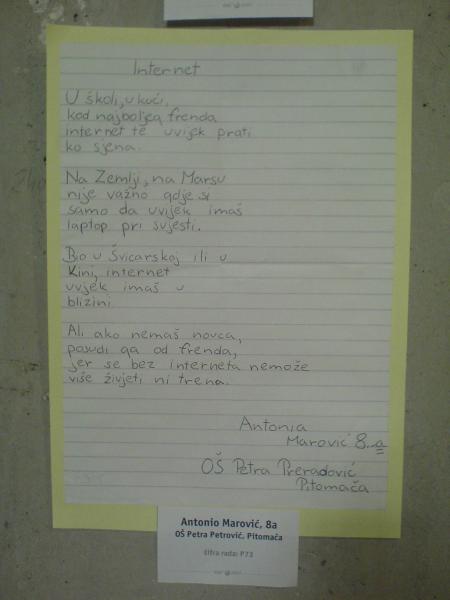 Internet
U školi, u kući,
kod najboljeg frenda
internet te uvijek prati
ko sjena.
Na Zemlji, na Marsu
nije važno gdje si
samo da uvijek imaš
laptop pri svjesti.
Bio u Švicarskoj ili u
Kini, internet
uvjek imaš u
blizini.
Ali ako nemaš novca,
posudi ga od frenda,
jer se bez interneta nemože
više živjeti ni trena.
Antonia
Marović 8.a
OŠ Petra Preradović
Pitomača
Antonio Marović, 8a
OŠ Petra Petrović, Pitomača
šifra rada: P73